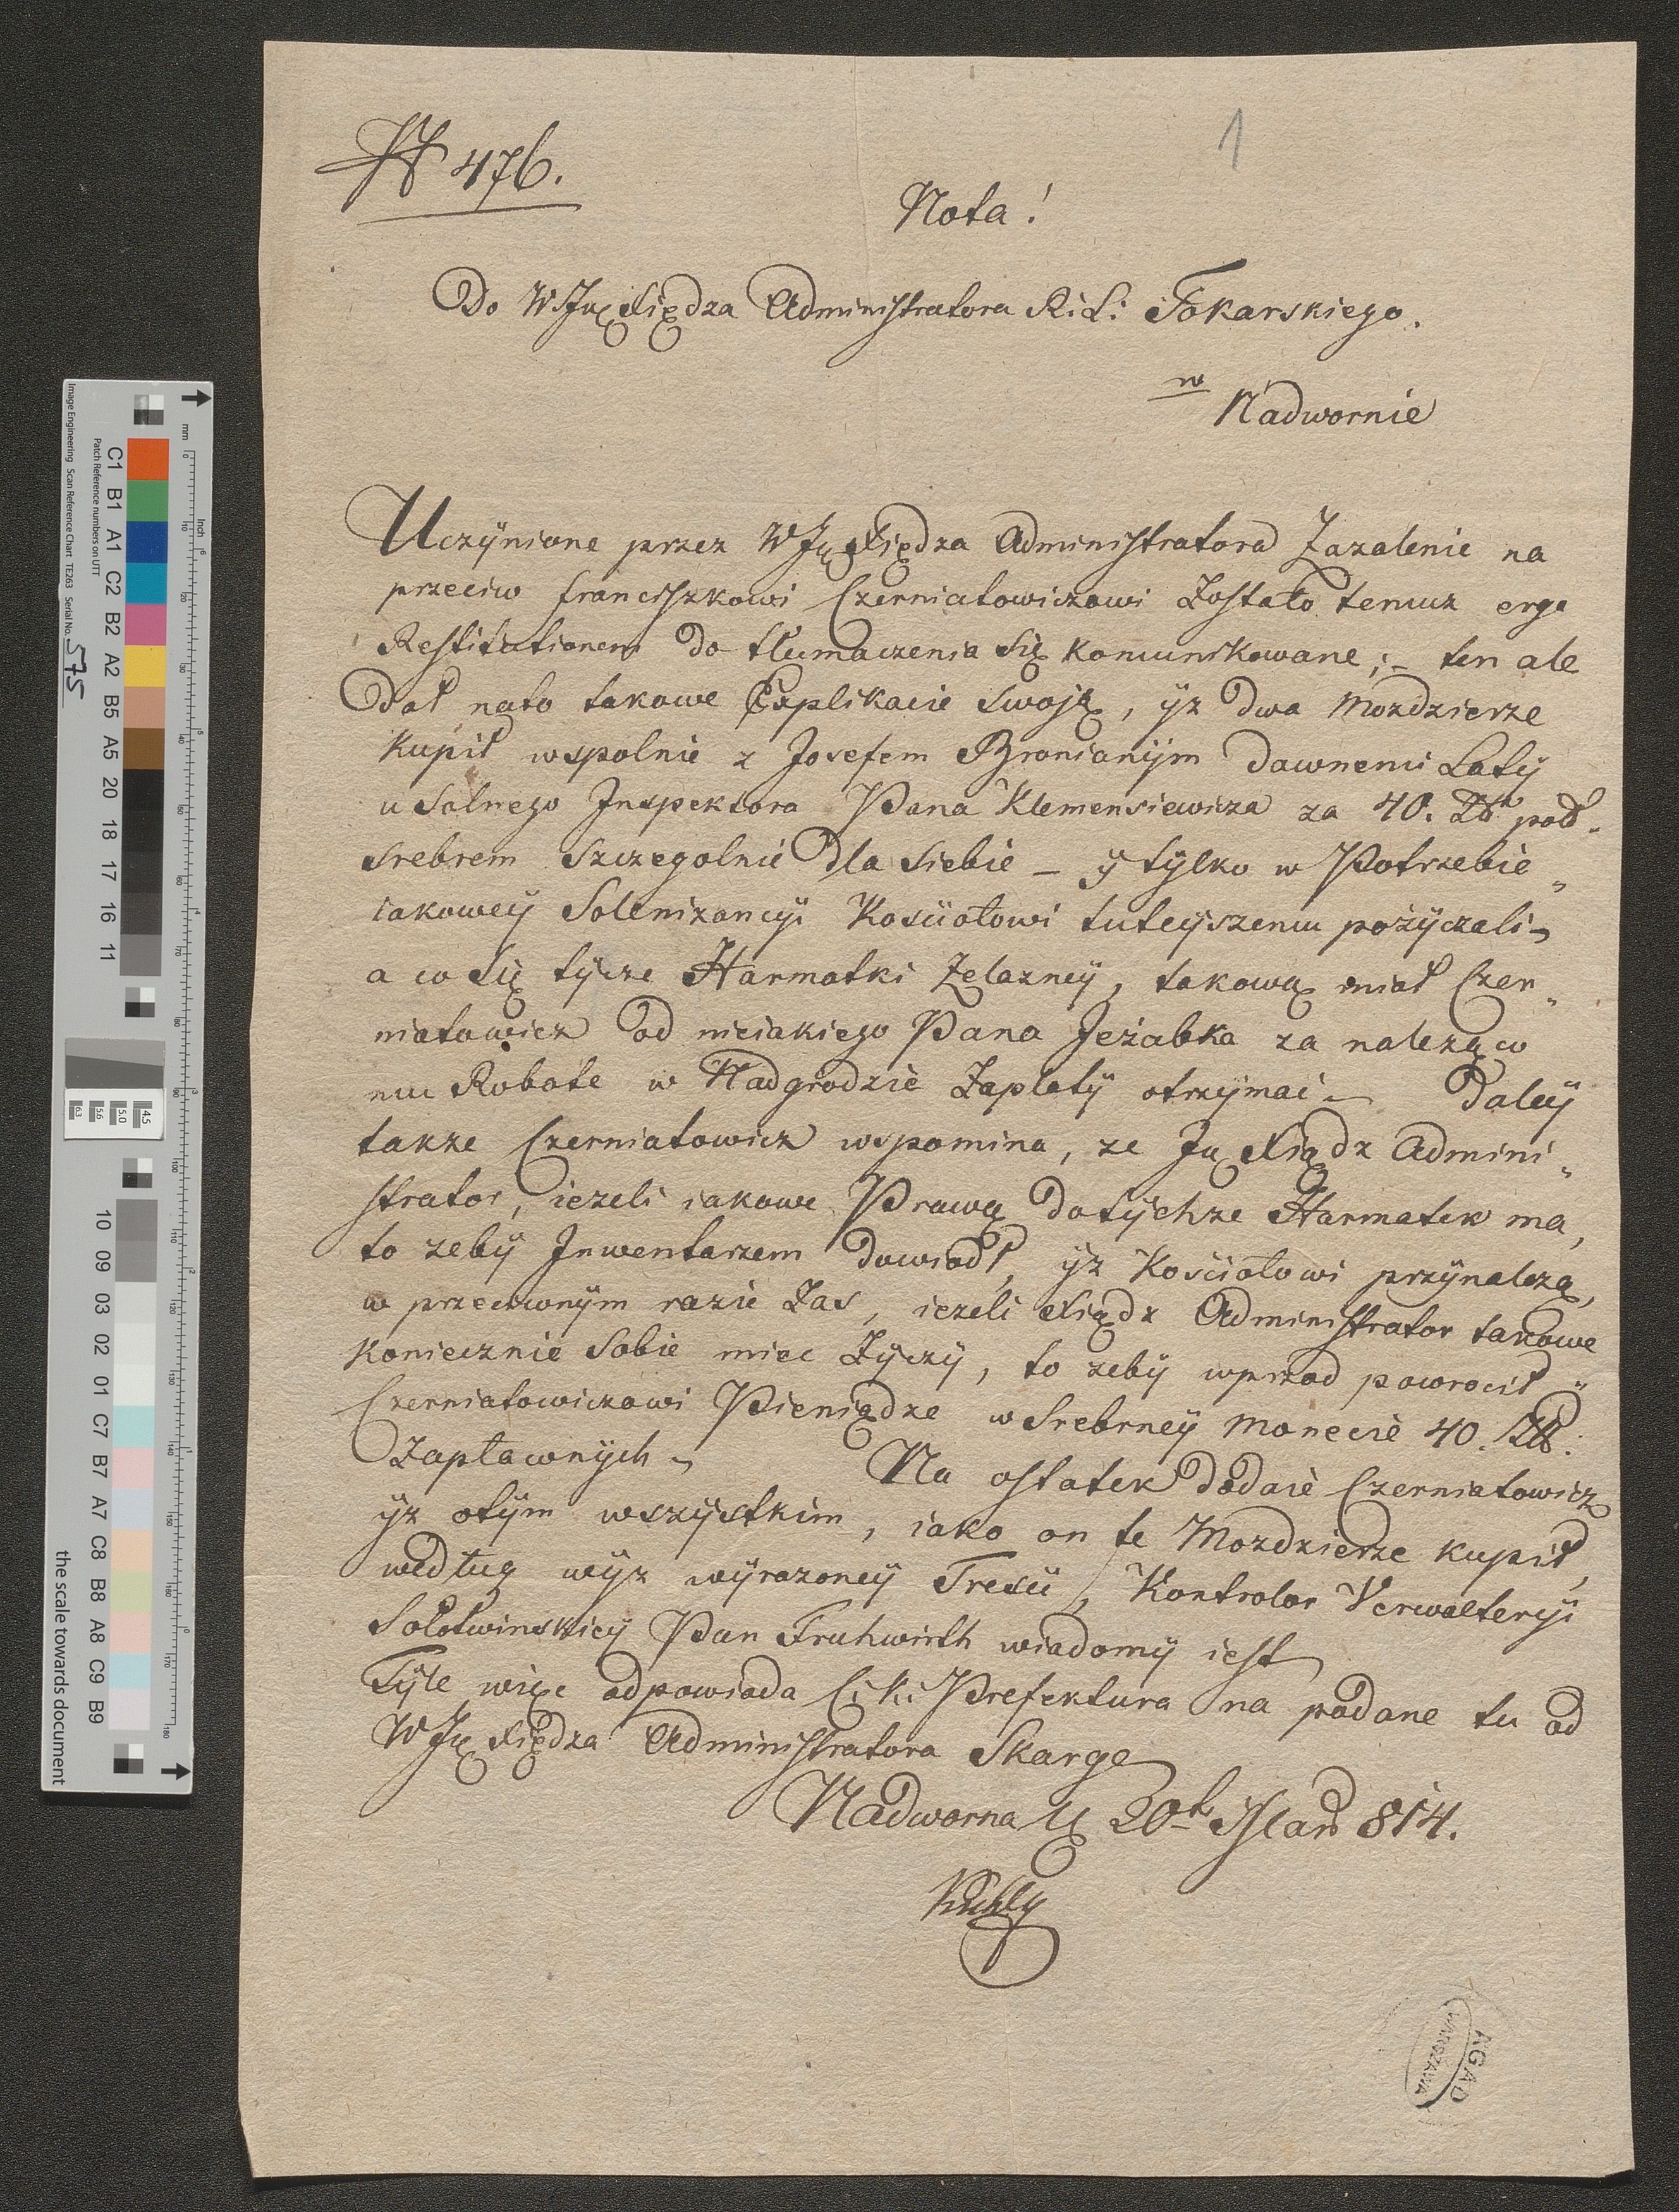 № 476.
1
Nota!
Do WJX Xiędza Administratora R: L: Tokarskiego.
w
Nadwornie
Uczÿnione przez WJX Xiędza Administratora Zazalenie na
przeciw franciszkowi Czerniatowiczowi Zostało temuz erga
Restitutionem do tłumaczenia Się komunikowane; – ten ale
Dał nato takowe Explikacie Swoję, ÿz dwa Mozdzierze
Kupił wspolnie z Josefem Bronianÿm dawnemi Latÿ
u Solnego Inspektora Pana Klemensiewicza za 40. ZR pod
Srebrem Szczegolnie dla Siebie – ÿ tÿlko w Potrzebie
iakoweÿ Solenizancÿi Kosciołowi tuteÿszemu pozÿczali –
a co Się tÿcze Harmatki Zelazneÿ, takową miał Czer„
niatowicz od nieiakiego Pana Jeżabka za nalezącą
mu Robote w Nadgrodzie Zapłatÿ otrzÿmać – Daleÿ
takze Czerniatowicz wspomina, ze JX Xiądz Admini„
strator, iezeli iakowe Prawa dotÿchze Harmatek ma,
to zebÿ Inwentarzem dowiodł, ÿz Kosciołowi przÿnalezą,
w przeciwnÿm razie Zas, iezeli Xiądz Administrator takowe
Koniecznie Sobie miec Zÿczÿ, to zebÿ wprzod powrocił
Czerniatowiczowi Pieniądze w Srebrneÿ Monecie 40. ZR:
Zapłaconÿch – Na ostatek dodaie Czerniatowicz
ÿz otÿm wszÿstkim, iako on te Mozdzierze kupił,
według wÿz wÿrazoneÿ Tresci, Kontrolor Verwalterÿi
Sołotwinskieÿ Pan Fruhwirth wiadomÿ iest
Tÿle więc odpowiada C: K: Prefektura na podane tu od
WJX Xiędza Administratora Skarge
Nadworna d 20t Marz 814.
AGAD
WARSZAWA
Image Engineering Scan Reference Chart TE263 Serial No. 575
Patch Reference numbers on UTT
C1 B1 A1 C2 B2 A2 B5 A5 20 18 17 16 11
10 09 03 02 01 C7 B7 A7 C8 B8 A8 C9 B9
mm
inch
the scale towards document